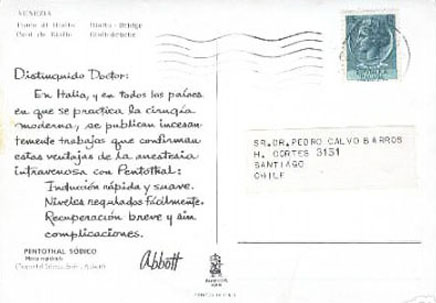 VENEZIA
Ponte di Rialto
Rialto-Bridge
Pont de Rialto
Rialtobrücke
Distinguido Doctor:
En Italia, y en todos los países
en que se practica la cirugía
moderna, se publican incesan-
temente trabajos que confirman
estas ventajas de la anestesia
intravenosa con Pentothal:
Inducción rápida y suave.
Niveles regulados fácilmente.
Recuperación breve y sin
complicaciones.
PENTOTHAL SÓDICO
Abbott
SR.DR.PEDRO CALVO BARROS
H. CORTES 3151
SANTIAGO
CHILE